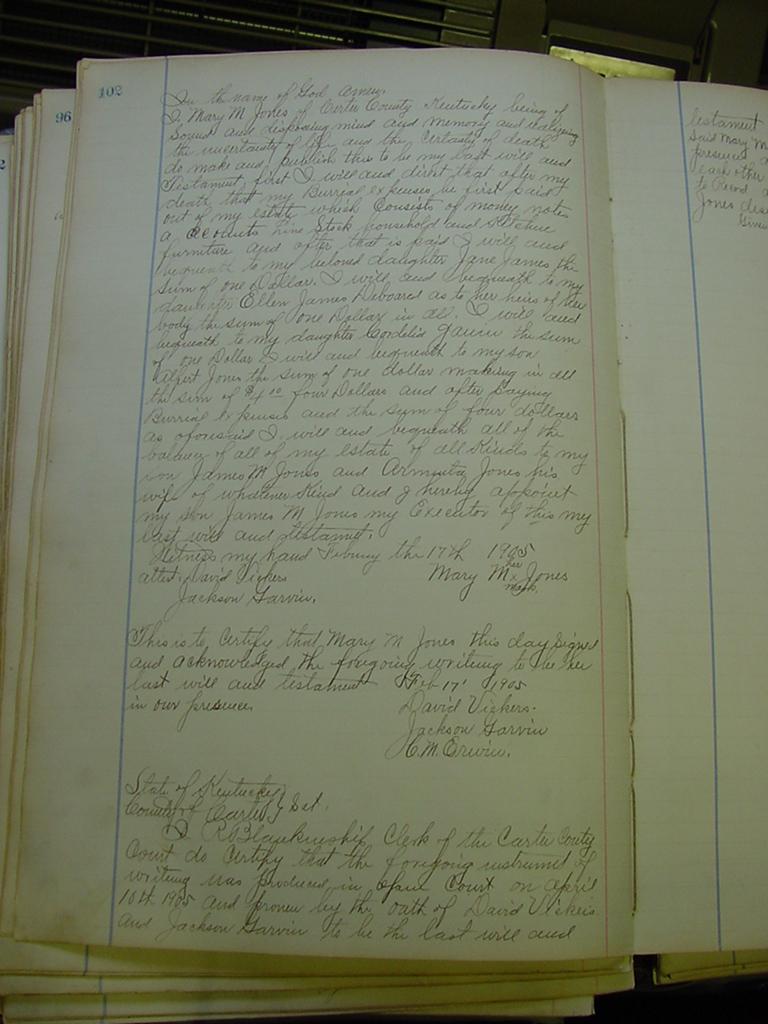 102
96
In the name of God Amen.
I Mary M Jones of Carter County Kentucky being of
Sound and disposing mind and memory and realizing
the uncertainty of life and the Certainty of death
do make and publish this to be my last will and
Testament first I will and direct that after my
death that my Burrial expenses be first paid
out of my estate which Consists of money notes
a ccounts Live Stock household and Kitchen
furniture and after that is paid I will and
bequeath to my beloved daughter Jane James the
Sum of one Dollar. I will and bequeath to my
daughter Ellen James Deboard as to her heirs of her
body the sum of one Dollar in all. I will and
bequeath to my daughter Cordelia the sum
of one Dollar I will and bequeath to my son
Albert Jones the sum of one dollar making in all
the sum of $4.00 four Dollars and after paying
Burrial expenses and the sum of four dollars
as aforesaid I will and bequeath all of the
balance of all of my estate of all Kinds to my
son James M Jones and Jones his
wife of whatever Kind and I hereby appoint
my son James M Jones my Executor of this my
last will and testament.
Witness my hand the 17th 1905
attest. David Vickers Mary M her x mark Jones
Jackson Garvin.
This is to Certify that Mary M Jones this day Signed
and acknowledged the foregoing writing to be her
last will and testament Feb 17' 1905
in our presence. David Vickers.
Jackson Garvin
C.M. Erwin.
State of Kentucky}
County of Carter} Sct.
I R Blankenship Clerk of the Carter County
Court do Certify that the foregoing instrument of
writing was produced in Open Court on April
10th 1905 and proven by the oath of David Vickers
and Jackson Garvin to be the last will and
testament
Said Mary M
presence
each other
to Record
Jones
Given